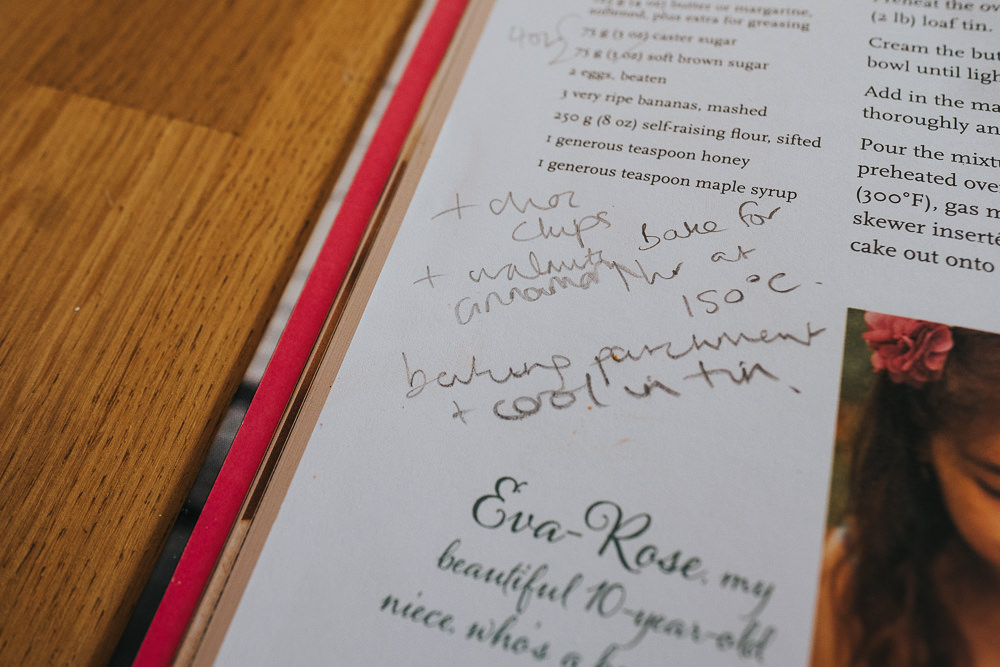 125 g (4 oz) butter or margarine,
softened, plus extra for greasing
75 g (3 oz) caster sugar
75 g (3 oz) soft brown sugar
2 eggs, beaten
3 very ripe bananas, mashed
250 g (8 oz) self-raising flour, sifted
1 generous teaspoon honey
1 generous teaspoon maple syrup
4oz
+ choc
chips
+ walnuts
cinnamon
Bake for
1hr at
150°C.
baking parchment
+ cool in tin.
Eva-Rose, my
beautiful 10-year-old
niece, who's a
Preheat the ov
(2 lb) loaf tin.
Cream the but
bowl until ligh
Add in the ma
thoroughly an
Pour the mixtu
preheated ove
(300°F), gas m
skewer inserte
cake out onto